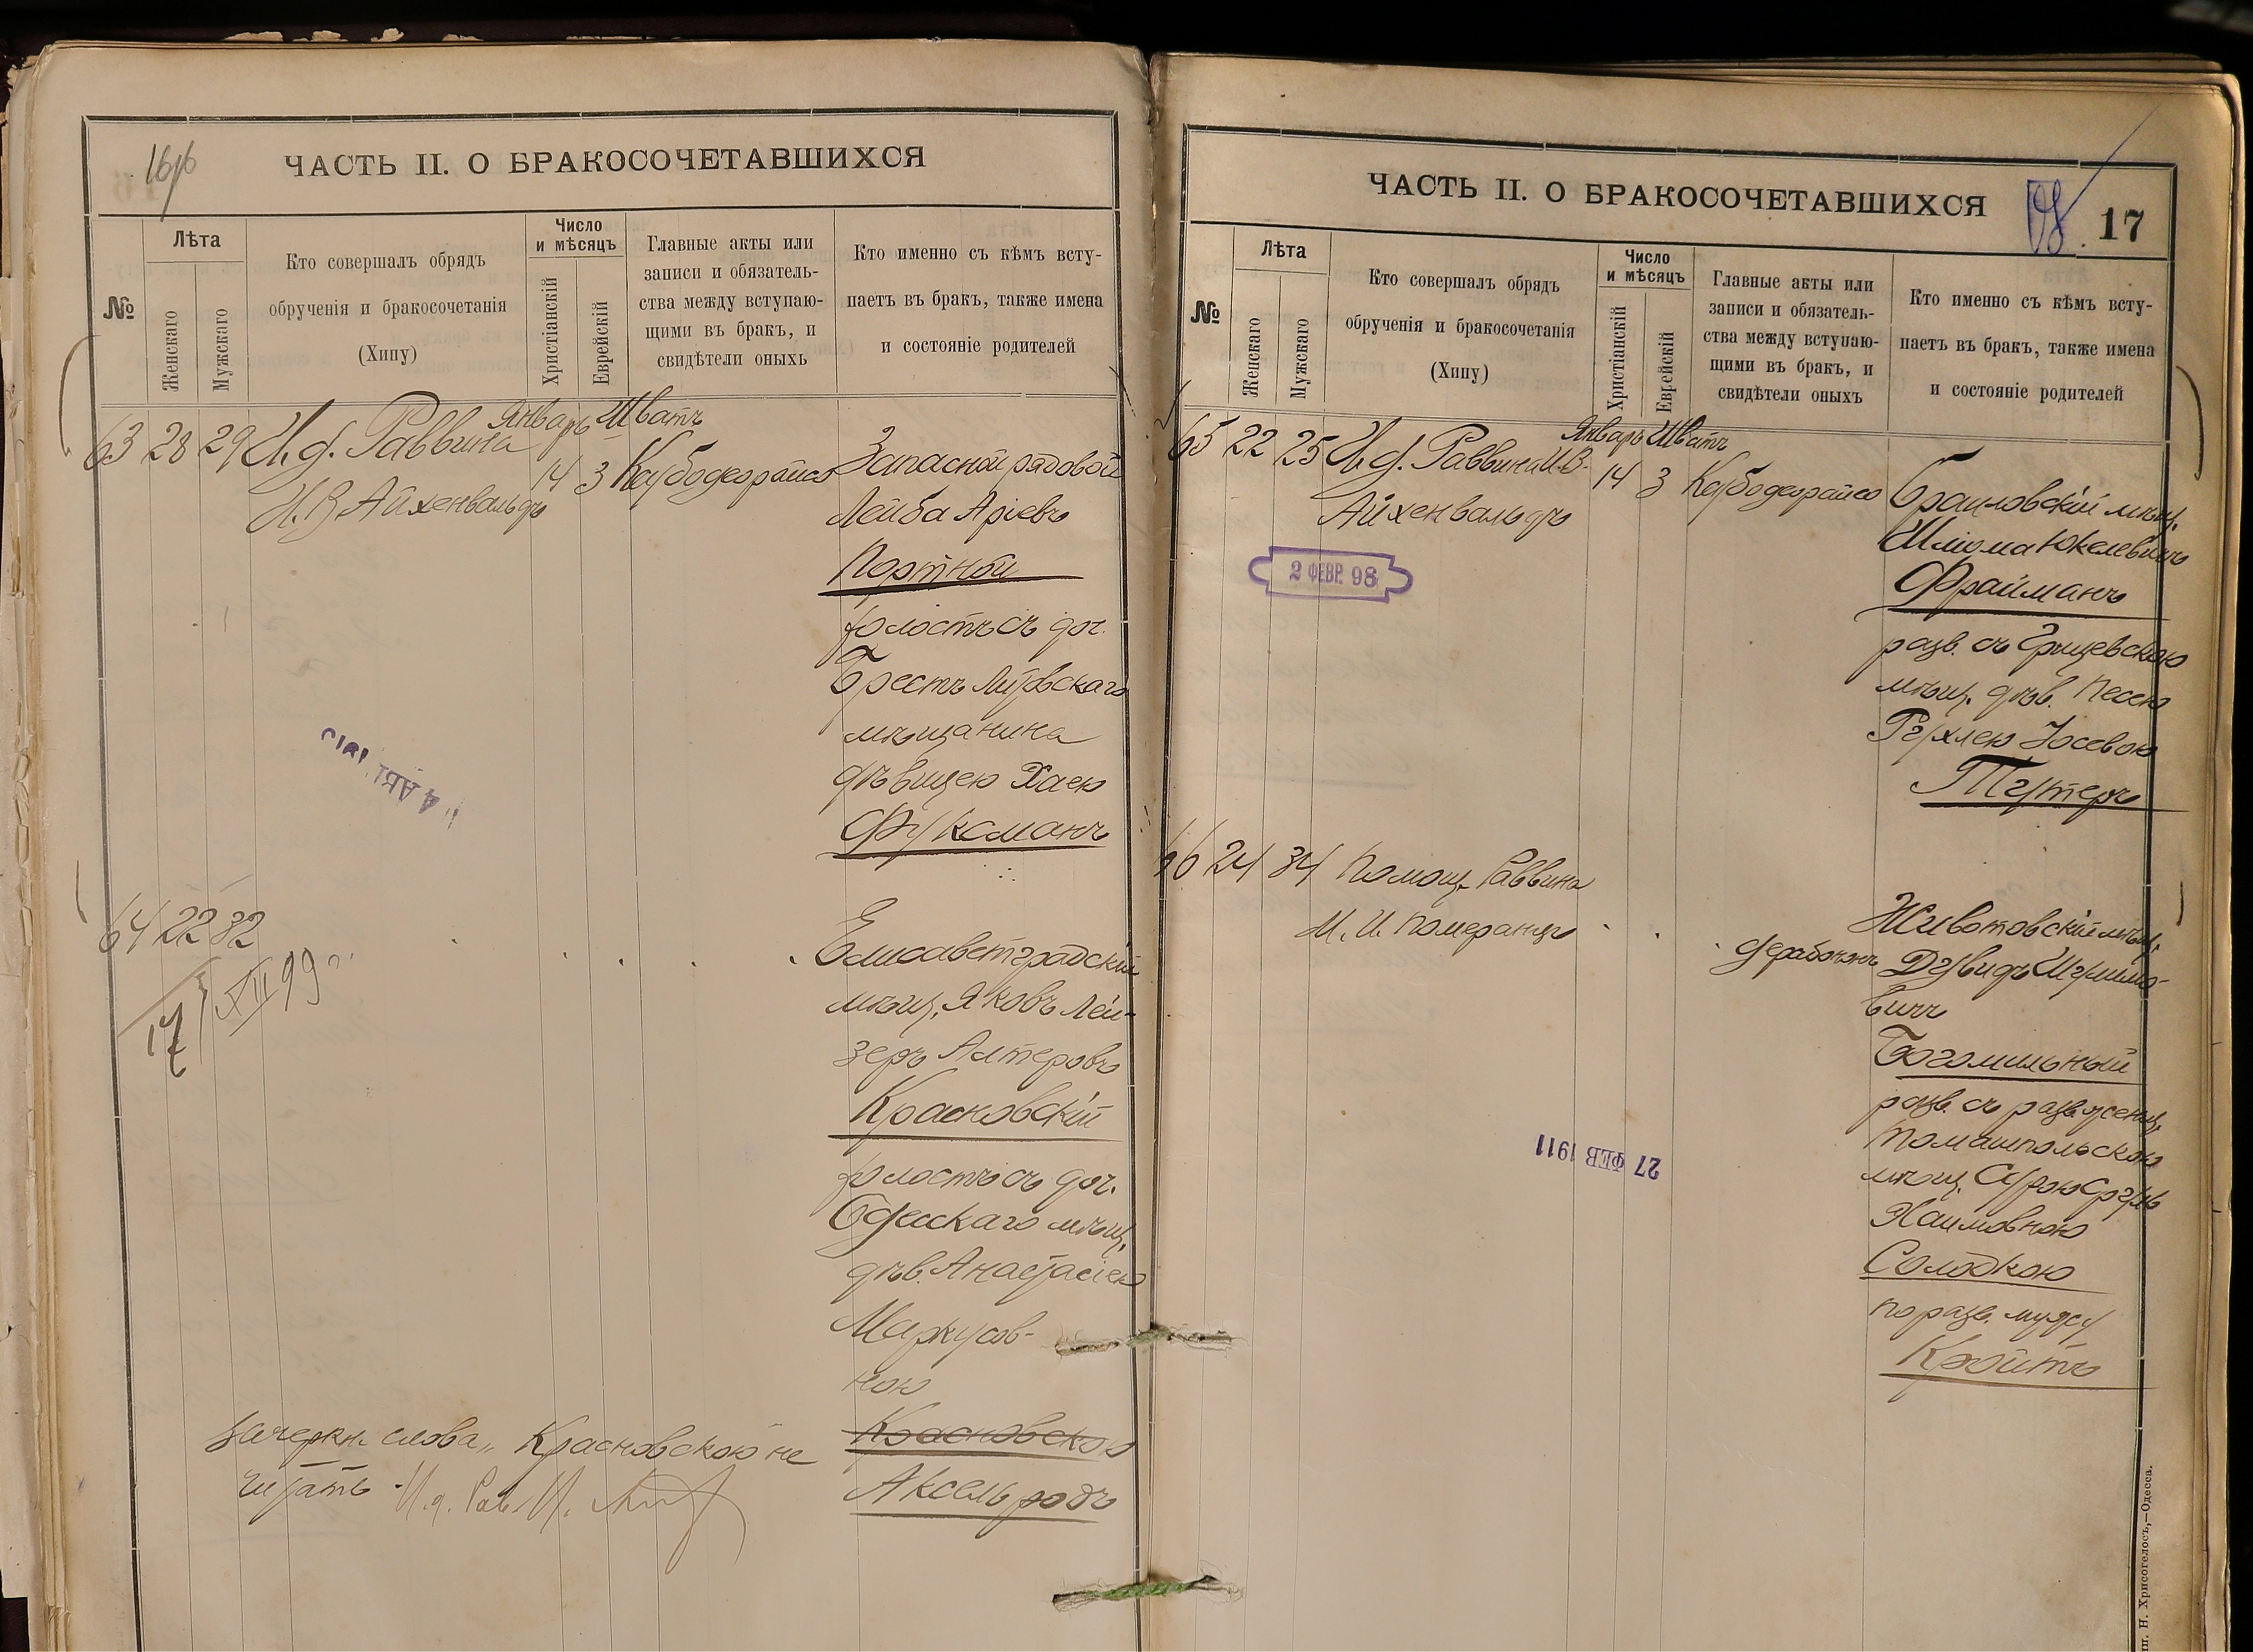 16/об
ЧАСТЬ II. О БРАКОСОЧЕТАВШИХСЯ
№
Лѣта
Женскаго
Мужскаго
Кто совершалъ обрядъ
обрученія и бракосочетанія
(Хипу)
Число
и мѣсяцъ
Христіанскій
Еврейскій
Главные акты или
записи и обязатель-
ства между вступаю-
щими въ бракъ, и
свидѣтели оныхъ
Кто именно съ кѣмъ всту-
паетъ въ бракъ, также имена
и состояніе родителей
63 28 29 И. д. Раввина
И. В. Айхенвальдъ
Январь Шватъ
14 3
Запасной рядовой
Лейба Аріевъ
Портной
холостъ съ доч.
Брестъ Литовскаго
мѣщанина
дѣвицею Хаею
Фуксманъ
64 22 32
17/XII 99 г.
Елисаветградскій
мѣщ. Яковъ Лей-
зеръ Алтеровъ
Красновскій
холостъ съ доч.
Одесскаго мѣщ.
дѣв. Анастасіею
Маркусов-
ною
Красновскою
Аксельродъ
Зачеркн. слова „Красновскою не
читать И. д. Рав.
ЧАСТЬ II. О БРАКОСОЧЕТАВШИХСЯ
17
№
Лѣта
Женскаго
Мужскаго
Кто совершалъ обрядъ
обрученія и бракосочетанія
(Хипу)
Число
и мѣсяцъ
Христіанскій
Еврейскій
Главные акты или
записи и обязатель-
ства между вступаю-
щими въ бракъ, и
свидѣтели оныхъ
Кто именно съ кѣмъ всту-
паетъ въ бракъ, также имена
и состояніе родителей
65 22 25 И. д. Раввина И. В.
Айхенвальдъ
Январь Шватъ
14 3
2 ФЕВР. 98
Браиловскій мѣщ.
Шлиома Юкелевичъ
Фрайманъ
разв. съ
мѣщ. дѣв. Песею
Рухлею Іосевою
Тутеръ
66 24 34 Помощ. Раввина
М. И. Померанцъ
Животовскій мѣщ.
Дувидъ
вичъ
Богомильный
разв. съ разв. женщ.
Томашпольскою
мѣщ. Сурою
Хаимовною
Солодкою
по разв. мужу
Кройтъ
27 ФЕВ 1911
Н. Хрисогелосъ,—Одесса.